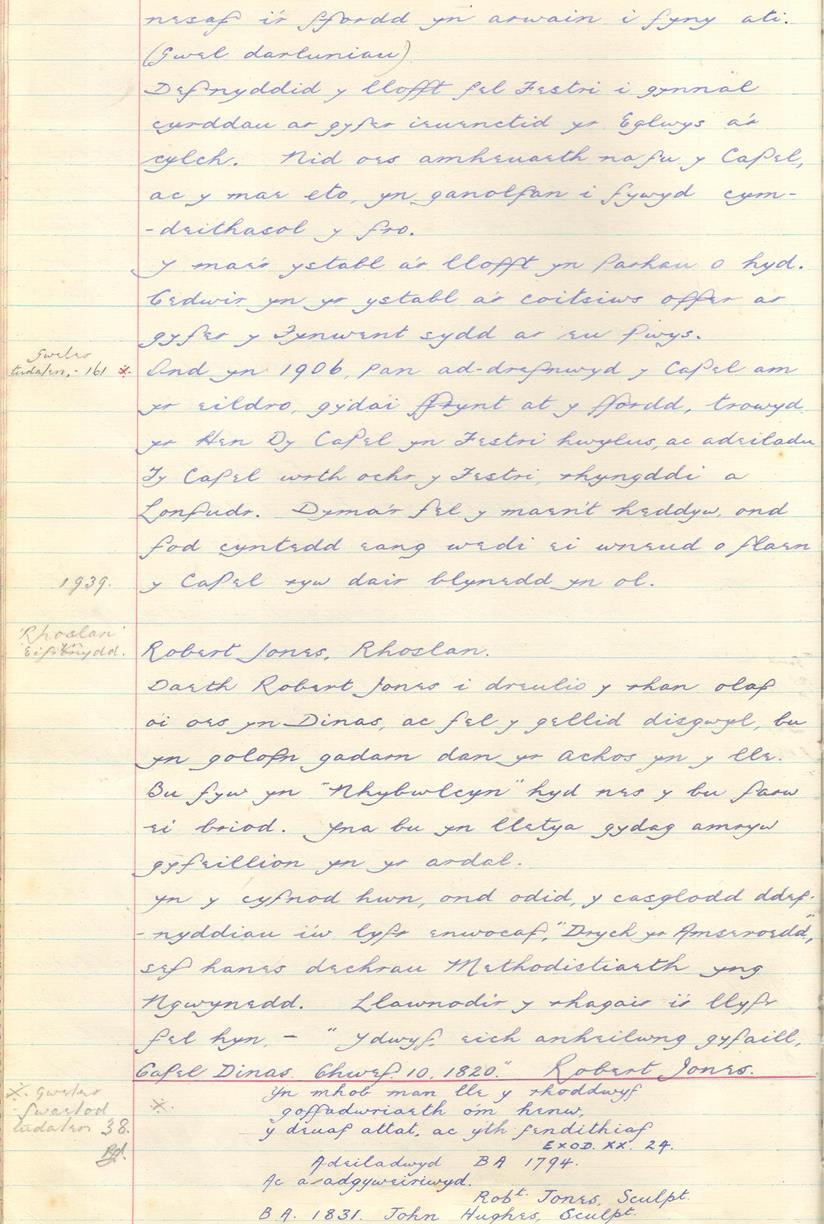 nesaf i'r ffordd yn arwain i fyny ati.
(Gwel darluniau)
Defnyddid y llofft fel Festri i gynnal
cyrddau ar gyfer ieuenctid yr Eglwys a'r
cylch. Nid oes amheuaeth na fu y Capel,
ac y mae eto, yn ganolfan i fywyd cym-
-deithasol y fro.
Y mae'r ystabl a'r llofft yn parhau o hyd.
Cedwir yn yr ystabl a'r coitsiws offer ar
gyfer y Fynwent sydd ar eu pwys.
Gweler
tudalen,- 161 *.
Ond yn 1906, pan ad-drefnwyd y Capel am
yr eildro, gyda'i ffrynt at y ffordd, trowyd
yr Hen Dy Capel yn Festri hwylus, ac adeiladu
Ty Capel wrth ochr y Festri, rhyngddi a
Lonfudr. Dyma'r fel y maen't heddyw, ond
fod cyntedd eang wedi ei wneud o flaen
1939.
y Capel ryw dair blynedd yn ol.
'Rhoslan'
Eifionydd.
Robert Jones, Rhoslan.
Daeth Robert Jones i dreulio y rhan olaf
o'i oes yn Dinas, ac fel y gellid disgwyl, bu
yn golofn gadarn dan yr Achos yn y lle.
Bu fyw yn "Nhybwlcyn" hyd nes y bu farw
ei briod. Yna bu yn lletya gydag amryw
gyfeillion yn yr ardal.
Yn y cyfnod hwn, ond odid, y casglodd ddef-
-nyddiau i'w lyfr enwocaf, "Drych yr Amseroedd",
sef hanes dechrau Methodistiaeth yng
Ngwynedd. Llawnodir y rhagair i'r llyfr
fel hyn, - " Ydwyf, eich anheilwng gyfaill,
Capel Dinas. Chwef. 10, 1820." Robert Jones.
*. Gweler
gwaelod
tudalen 38.
*.
Yn mhob man lle y rhoddwyf
goffadwriaeth o'm henw,
y deuaf attat, ac y'th fendithiaf
EXOD. XX. 24.
Adeiladwyd BA 1794.
Ac a adgyweiriwyd.
Robt. Jones, Sculpt.
B.A. 1831. John Hughes, Sculpt.